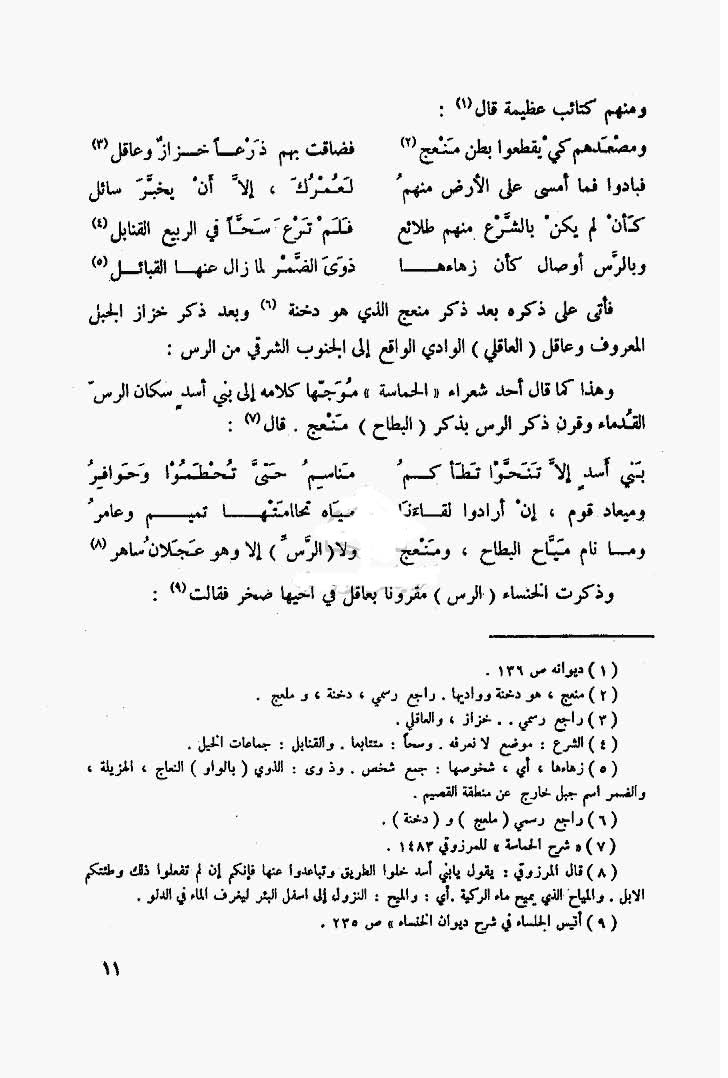 ومنهم كتائب عظيمة قال(١) :
ومصْعَدهم كيْ يقطعوا بطن مَنْعج(٢) فضاقت بهم ذَرْعاً خزازٌ وعاقل(٣)
فبادوا فما أمسى على الأرض منهمُ لَعُمْرُكَ ، إلاَّ أَنْ يخبَّرَ سائل
كَأنْ لم يكنْ بالشَّرْع منهم طلائع فَلَمْ تَرْعَ سَحَّاً في الربيع القنابل(٤)
وبالرَّس أوصال كأن زهاءها ذوَىَ الضَّمْر لما زال عنها القبائل(٥)
فأتى على ذكره بعد ذكر منعج الذي هو دخنة (٦) وبعد ذكر خزاز الجبل
المعروف وعاقل ( العاقلي ) الوادي الواقع إلى الجنوب الشرقي من الرس :
وهذا كما قال أحد شعراء « الحماسة » مُوَجّها كلامه إلى بني أسدٍ سكان الرسّ
القُدماء وقرن ذكر الرس بذكر ( البطاح ) مَنْعج . قال(٧) :
بَني أَسدٍ إلاَّ تَنَحَّوْا تَطَأكمُ مَناسِمُ حَتىَّ تُحْطَمُوْا وَحَوافِرُ
وميعاد قوم ، إنْ أرادوا لقاءَنَا مياه تحامَتْها تميم وعامرُ
وما نام مَيَّاح البطاح ، ومَنْعج ولا ( الرَّسِّ ) إلا وهو عَجَلانُ ساهر(٨)
وذكرت الخنساء ( الرس ) مقرونا بعاقل في اخيها صخر فقالت(٩) :
( ١ ) ديوانه ص ١٣٦ .
( ٢ ) منعج ، هو دخنة وواديها . راجع رسمي ، دخنة ، و ملعج .
( ٣ ) راجع رسمي . . خزاز ، والعاقلي .
( ٤ ) الشرع : موضع لا نعرفه . وسحاً : متتابعا . والقنابل : جماعات الخيل .
( ٥ ) زهاءها ، أي ، شخوصها : جمع شخص . وذوى : الذوي ( بالواو ) النعاج ، الهزيلة ،
والضمر اسم جبل خارج عن منطقة القصيم .
( ٦ ) راجع رسمي ( ملعج ) و ( دخنة ) .
( ٧ ) « شرح الحماسة » للمرزوقي ١٤٨٣ .
( ٨ ) قال المرزوقي : يقول يابني أسد خلوا الطريق وتباعدوا عنها فإنكم إن لم تفعلوا ذلك وطئتكم
الابل . والمياح الذي يميح ماء الركية .أي : والميح : النزول إلى اسفل البئر ليغرف الماء في الدلو .
( ٩ ) أنيس الجلساء في شرح ديوان الخنساء » ص ٢٣٥ .
١١